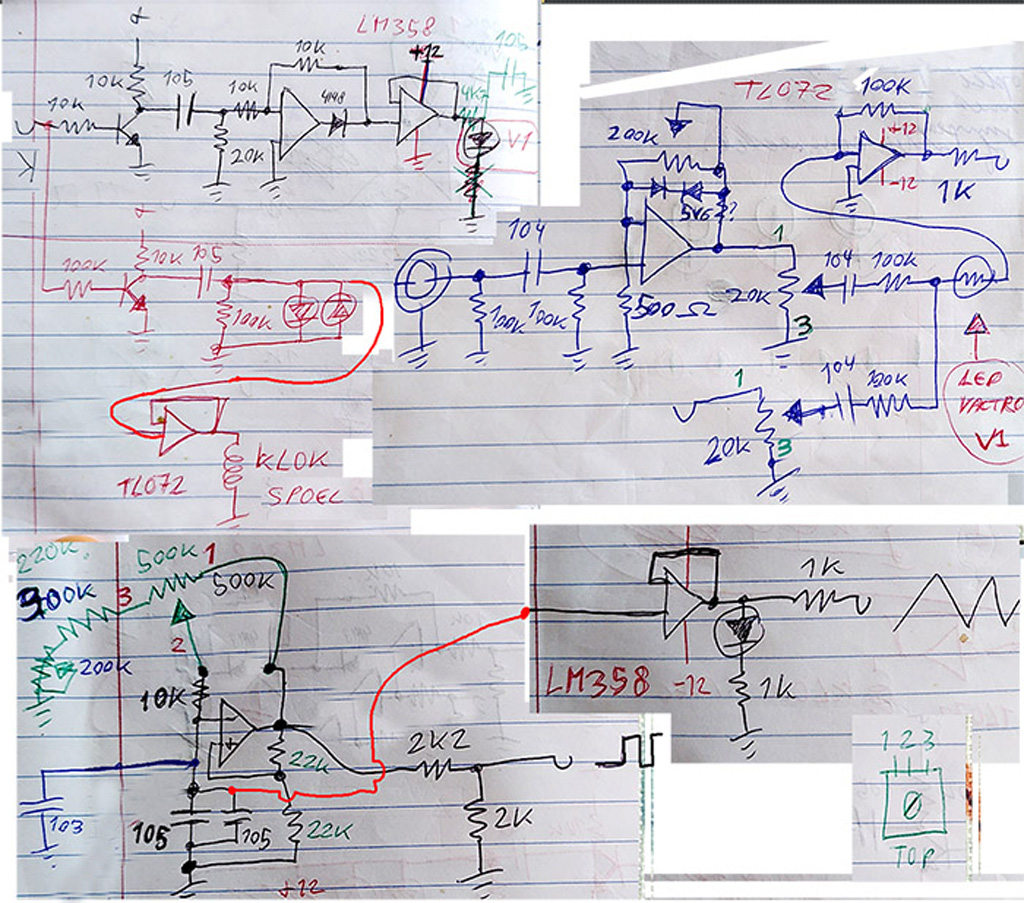 LM358
+12
105
10K
10K
105
10K
4148
4K7
10K
20K
V1
K
10K
105
100K
100K
TL072
KLOK
SPOEL
TL072
100K
+12
-12
1K
200K
5V6?
104
1
104
100K
100K
100K
500Ω
20K
3
1
104
120K
20K
3
LED
VACTRO
V1
220K.
500K
1
500K
3
200K
2
10K
22K
2K2
103
105
105
22K
2K
+12
1K
LM358
-12
1K
1 2 3
Ø
TOP